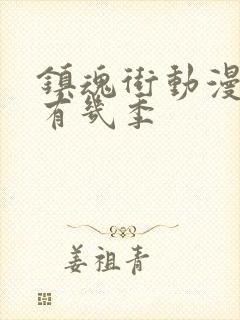 鎮魂街動漫
有幾季
姜祖青